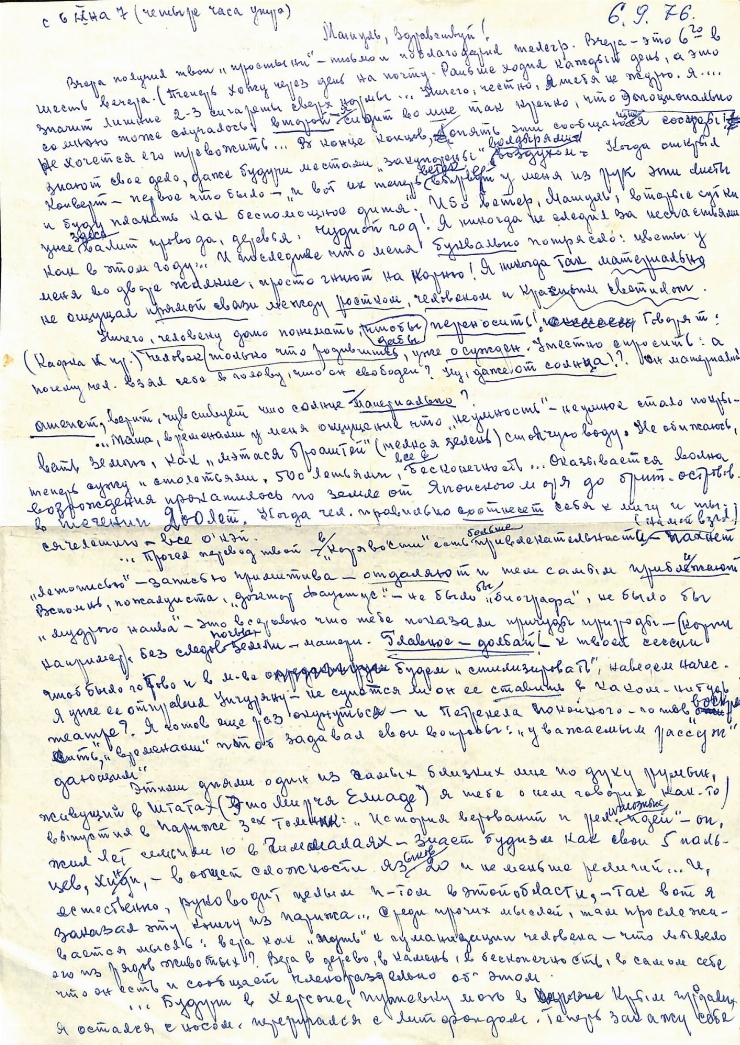 с 6 IX на 7 (четыре часа утра)
6.9.76.
Машуль, здравствуй!
Вчера получил твои „простыни" – письмо и поблагодарил телегр. Вчера – это 6го в
шесть вечера. (Теперь хожу через день на почту. Раньше ходил каждый день, а это
значит лишние 2-3 сигареты сверх нормы... Ничего, честно, я тебя не журю. Я....
со мною тоже случалось!) второй сидит во мне так крепко, что эмоционально
не хочется его тревожить... В конце концов, опять эти сообщающиеся сосуды
знают свое дело, даже будучи местами „закупорены" воздухом. Когда открыл
конверт – первое что было – „и вот их теперь ветер вырвет у меня из рук эти листы
и буду плакать как беспомощное дитя". Ибо ветер, Машуль, вторые сутки
уже здесь валит провода, деревья. Чудной год! Я никогда не следил за несчастьями
как в этом году... И последнее что меня буквально потрясло: цветы у
меня во дворе жалкие, просто гниют на корню! Я никогда так материально
не ощущал прямой связи между ростком, человеком и красным светилом.
Ничего, человеку дано понимать, чтобы дабы переносить! Говорят:
(Кафка и др.) человек только что родившись, уже осужден. Уместно спросить: а
почему чел. взял себе в голову, что он свободен? Ну, даже от солнца!? он материалист
атеист, верит, чувствует что солнце – материально?
... Маша, временами у меня ощущение что „неумность" – неумное стало покры-
вать землю, как „мэтася броаштей" (мелкая зелень) стоячую воду. Не обижаюсь,
теперь сужу „столетьями, 500 летьями, все в бесконечность... Оказывается волна
возрождения прокатилось по земле от Японского моря до брит. островов
в течении 200 лет. Когда чел. правильно соотнесет себя к мигу и ты-
сячелетию – все о'кэй.
... Прочел перевод твой – в „корявости" есть больше привлекательности (на мой взгл.) – пахнет
„летописью" – записью примитива – отдаляют и тем самым приближают
Вспомнь, пожалуйста, „доктор Фаустус" – не было бы „биографа", не было бы
„мудрого наива" – это всё равно что тебе показали причуды природы – (корни
например) без следов почвы земли – матери. Главное – долбай! к твоей сессии
чтоб было готово и в м-ве будем „стилизировать", наведем начес.
Я уже ее отправил Унгуряну – не сунется ли он ее ставить в каком-нибудь
театре? Я готов еще раз окунуться – и Петрекела покойного – готов воскре-
сить, „временами" чтоб задавал свои вопросы: „уважаемым рассуж"
дающим"
Этими днями один из самых близких мне по духу румын,
живущий в Штатах (Это Мирча Елиаде) я тебе о нем говорил как-то)
выпустил в Париже 3ех томник: „История верований и религиозных идей" – он,
жил лет семь или 10 в Гималаях – знает будизм как свои 5 паль-
цев, Хинди, – в общей сложности языков 20 и не меньше религий... И,
естественно, руководит целым и-том в этой области, – так вот я
заказал эту книгу из Парижа... Среди прочих мыслей, там прослежи-
вается мысль: вера как „путь" к гуманизации человека – что вывело
его из рядов животных? Вера в дерево, в камень, в бесконечность, в самом себе
что он есть и сообщает членораздельно об этом.
... Будучи в Херсоне, путевку мою в Крым продали
Я остался с носом. переругался с литфондом. Теперь закажу себе